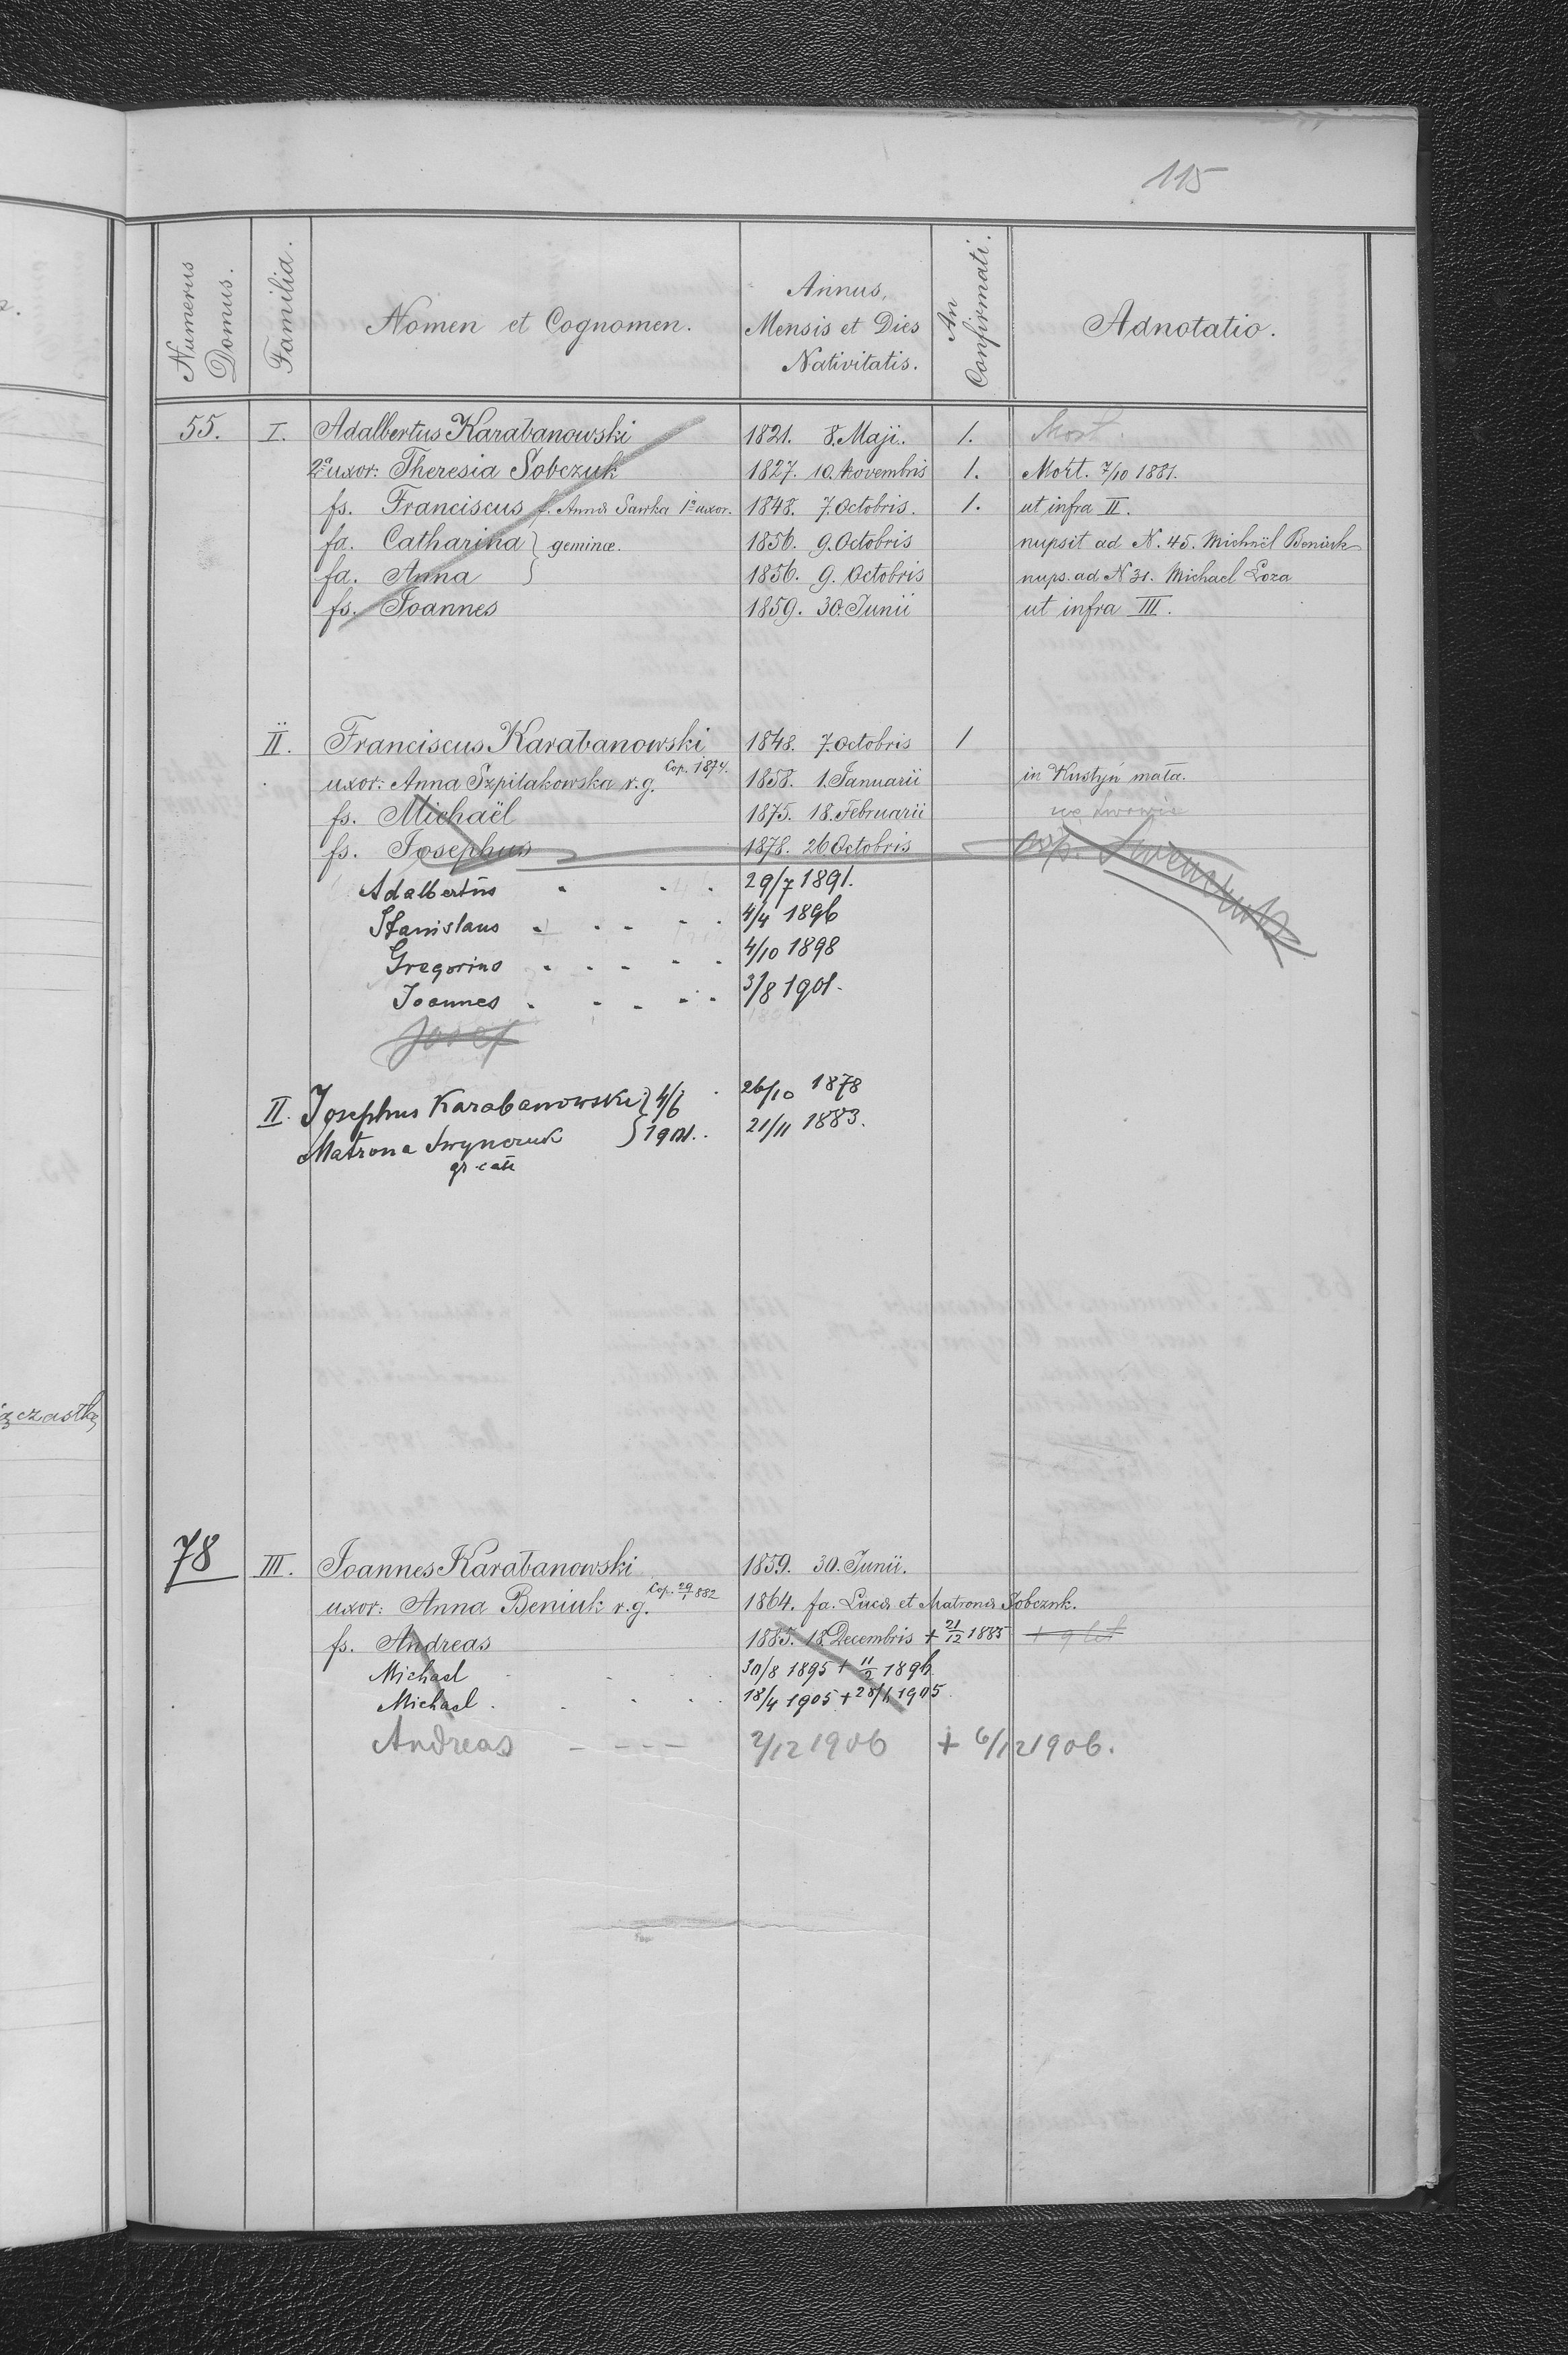 115
Numerus Domus. Familia. Nomen et Cognomen. Annus, Mensis et Dies Nativitatis. An Confirmati. Adnotatio.
55. I. Adalbertus Karabanowski 1821. 8. Maji. 1. Mort.
2a uxor: Theresia Sobczuk 1827. 10. Novembris 1. Mort. 7/10 1881.
fs. Franciscus f. Annæ Sawka 1a uxor. 1848. 7. Octobris. 1. ut infra II.
fa. Catharina } geminæ. 1856. 9. Octobris nupsit ad N. 45. Michaël Beniuk
fa. Anna } 1856. 9. Octobris nups. ad N 31. Michael Loza
fs. Joannes 1859. 30. Junii ut infra III.
II. Franciscus Karabanowski 1848. 7. Octobris 1
uxor: Anna Szpilakowska r.g. Cop. 1874. 1858. 1. Januarii in Kustyń mała.
fs. Michaël 1875. 18. Februarii we Lwowie
fs. Josephus 1878. 26 Octobris
Adalbertus 29/7 1891.
Stanislaus 4/4 1896
Gregorius 4/10 1898
Joannes 3/8 1901.
Josef
II. Josephus Karabanowski } 4/6 26/10 1878
Matrona } 1901. 21/11 1883.
gr. cat
ączastkę
78 III. Joannes Karabanowski 1859. 30. Junii.
uxor: Anna Beniuk r.g. Cop. 29/1 882 1864. fa. Lucæ et Matronæ Sobczuk.
fs. Andreas 1885. 18 Decembris + 21/12 1885
Michael 30/8 1895 + 11/2 1896
Michael 18/4 1905 + 1905
Andreas - - - - 2/12 1906 + 6/12 1906.